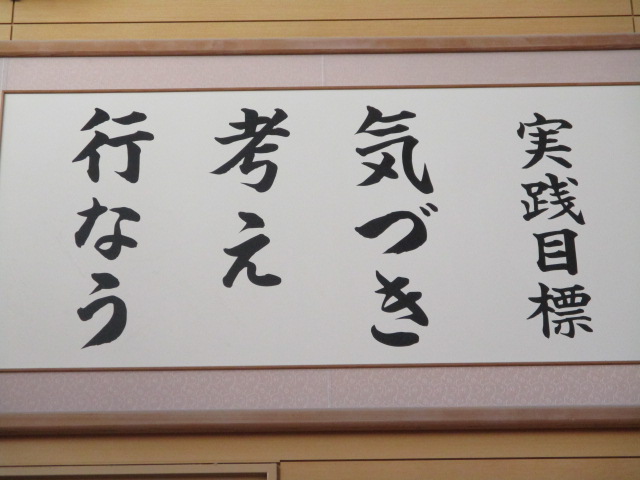 実践目標
気づき
考え
行なう